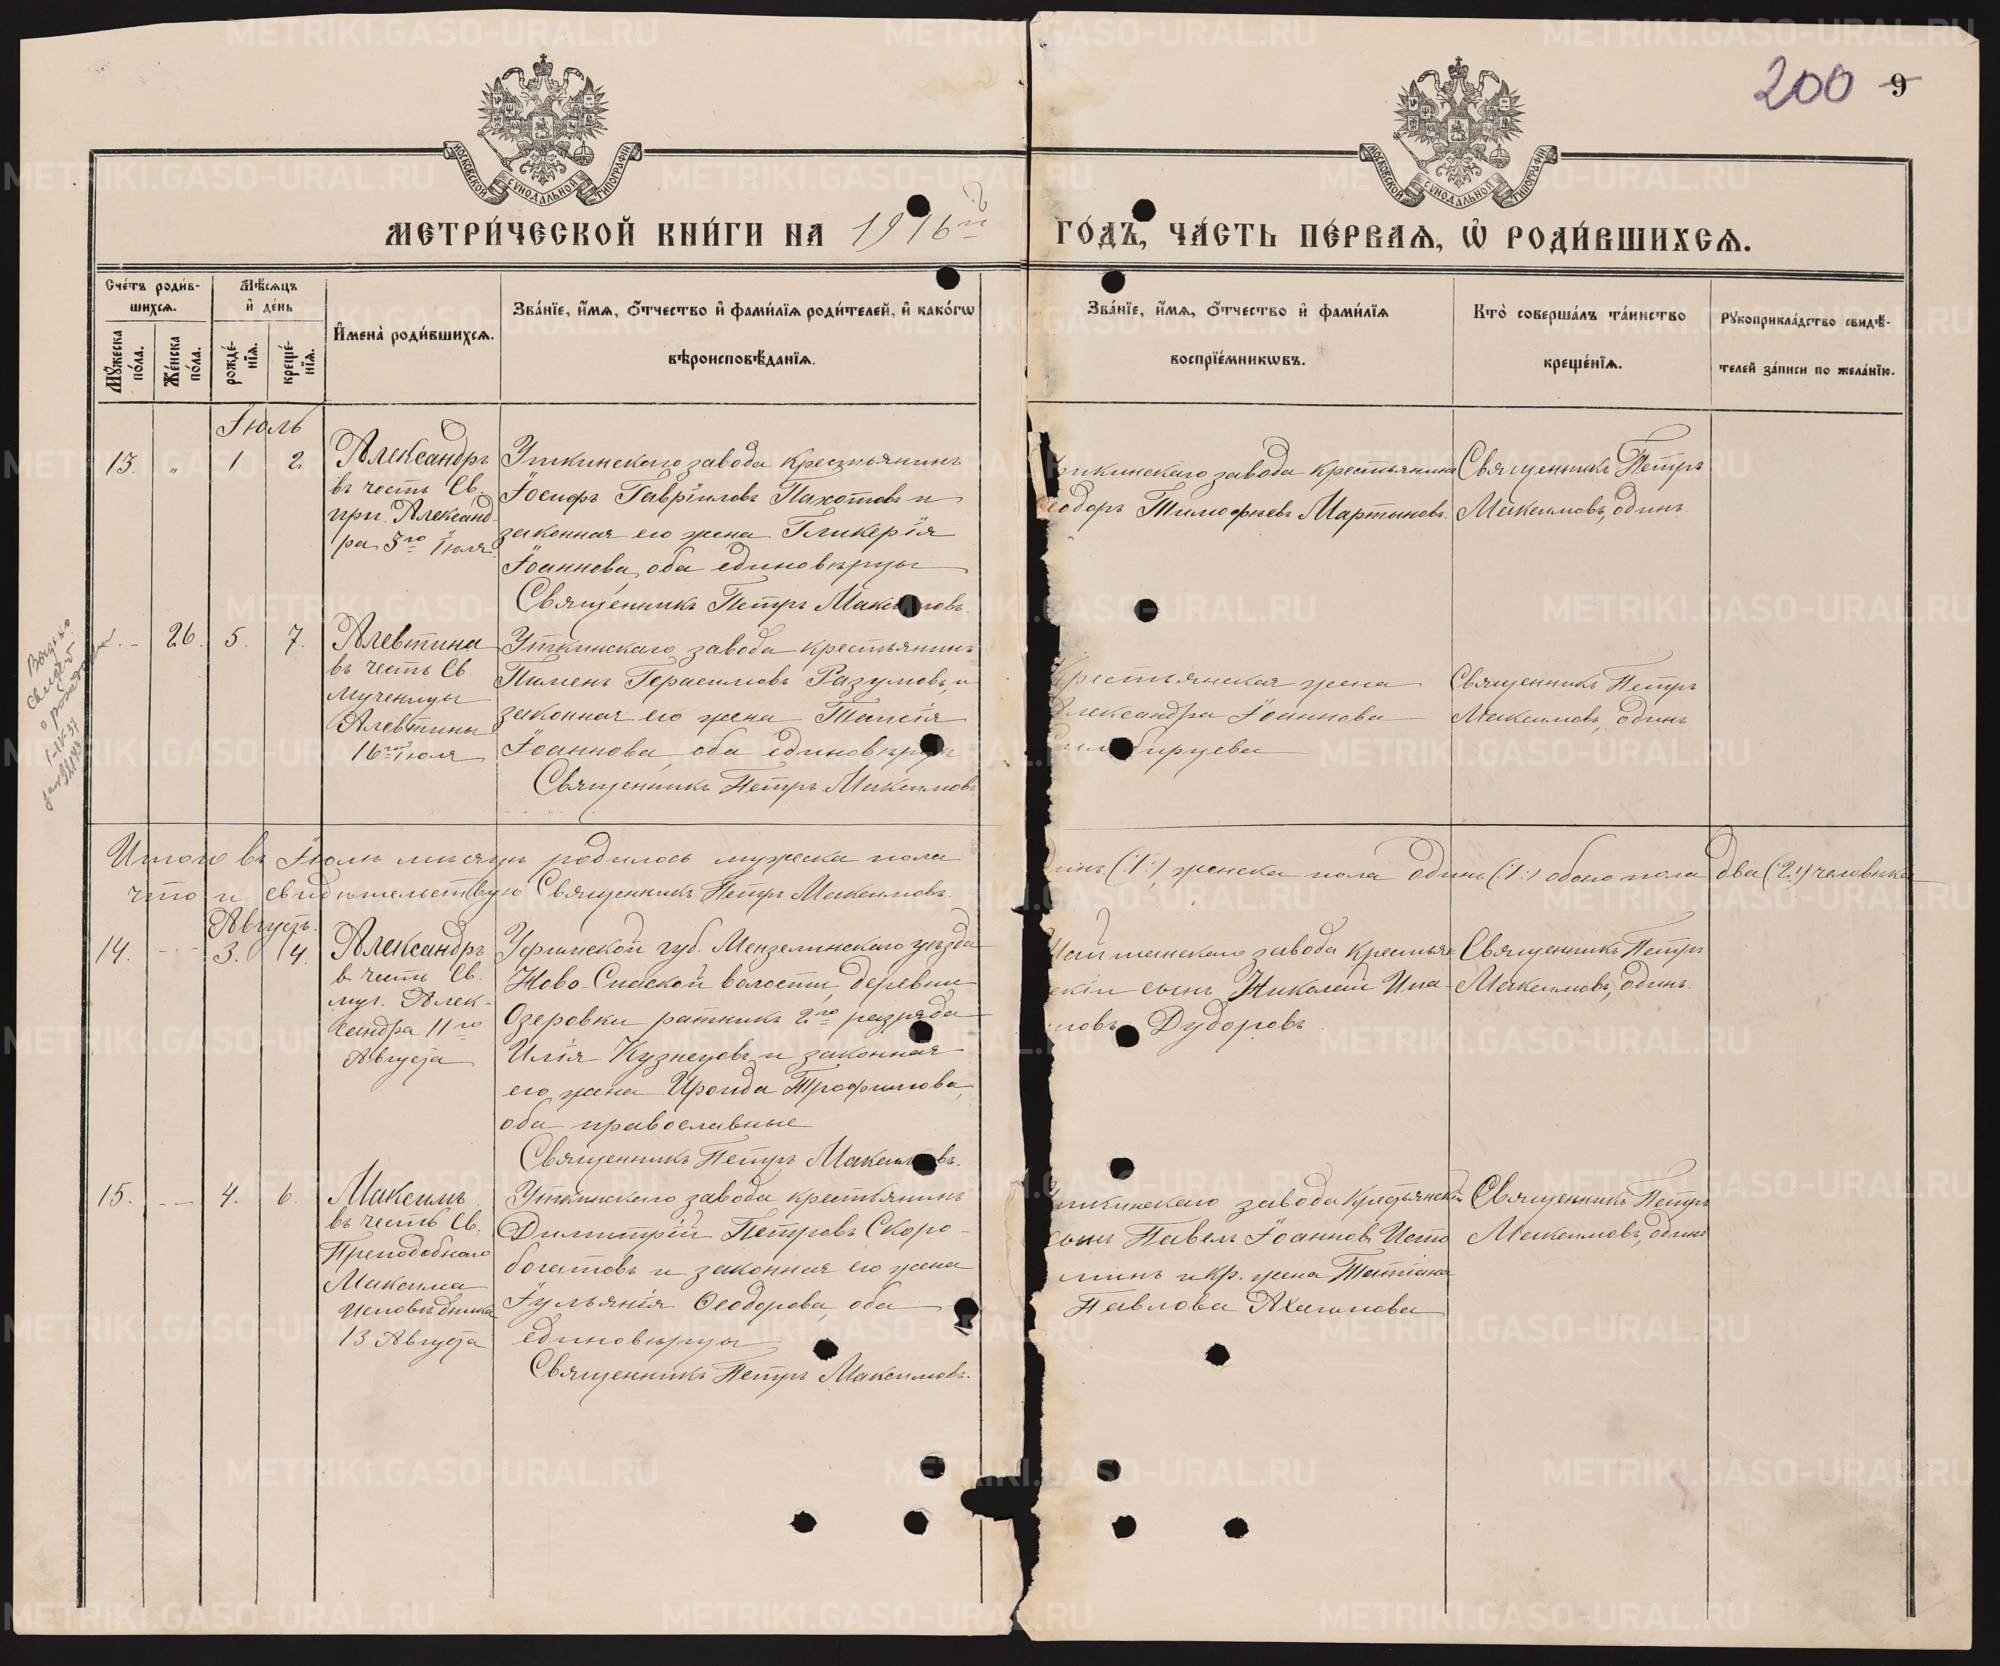 200 9
МОСКОВСКОЙ СѴНОДАЛЬНОЙ ТИПОГРАФІИ
МОСКОВСКОЙ СѴНОДАЛЬНОЙ ТИПОГРАФІИ
МЕТРИ́ЧЕСКОЙ КНИ́ГИ НА 1916й ГО́ДЪ, ЧА́СТЬ ПЕ́РВАѦ, Ѡ҆ РОДИ́ВШИХСѦ.
Сче́тъ роди́в-
шихсѧ.
Мꙋ́жеска по́ла.
Же́нска по́ла.
Мѣ́сѧцъ
и҆ де́нь
рожде́-
нїѧ.
креще́-
нїѧ.
И҆мена̀ роди́вшихсѧ.
Зва́нїе, и҆́мѧ, ѻ҆́тчество и҆ фами́лїѧ роди́телей, и҆ како́гѡ
вѣроисповѣ́данїѧ.
Зва́нїе, и҆́мѧ, ѻ҆́тчество и҆ фами́лїѧ
воспрїе́мникѡвъ.
Кто̀ соверша́лъ та́инство
креще́нїѧ.
Рꙋкоприкла́дство свидѣ́-
телей за́писи по жела́нїю.
Іюль
13. „ 1 2.
Александръ
въ честь Св.
прп. Александ-
ра 3го Іюля
Уткинскаго завода крестьянинъ
Іосифъ Гавріиловъ Пахотовъ и
законная его жена Гликерія
Іоаннова, оба единовѣрцы
Священникъ Петръ Максимовъ.
Уткинскаго завода крестьянинъ
Ѳеодоръ Тимофѣевъ Мартыновъ.
Священникъ Петръ
Максимовъ, одинъ.
26. 5. 7.
Алевтина
въ честь Св.
Мученицы
Алевтины
16го Іюля
Уткинскаго завода крестьянинъ
Пименъ Герасимовъ Разумовъ, и
законная его жена Таисія
Іоаннова, оба единовѣрцы
Священникъ Петръ Максимовъ
Крестьянская жена
Александра Іоаннова
Симбирцева
Священникъ Петръ
Максимовъ, одинъ
о рождении
Итого въ Іюлѣ мѣсяцѣ родилось мужеска пола одинъ (:1:), женска пола одинъ (:1:) обоего пола два (:2:) человѣка
что и свидѣтельствую Священникъ Петръ Максимовъ.
Августъ.
14. 3. 4.
Александръ
въ честь Св.
муч. Алек-
сандра 11го
Августа
Уфимской губ. Мензелинскаго уѣзда
Ново-Спаской волости, деревни
Озеровки ратникъ 2го разряда
Илія Кузнецовъ и законная
его жена Ираида Трофимова,
оба православные
Священникъ Петръ Максимовъ.
Шайтанскаго завода крестьян-
скій сынъ Николай Ипа-
товъ Дудоровъ
Священникъ Петръ
Максимовъ, одинъ.
15. 4. 6.
Максимъ
въ честь Св.
Преподобнаго
Максима
Исповѣдника
13 Августа
Уткинскаго завода крестьянинъ
Димитрій Петровъ Скоро-
богатовъ и законная его жена
Іульянія Ѳеодорова, оба
единовѣрцы
Священникъ Петръ Максимовъ.
Уткинскаго завода Крестьянскій
сынъ Павелъ Іоанновъ Исто-
минъ и кр. жена Татіана
Павлова Ахаимова
Священникъ Петръ
Максимовъ, одинъ
METRIKI.GASO-URAL.RU